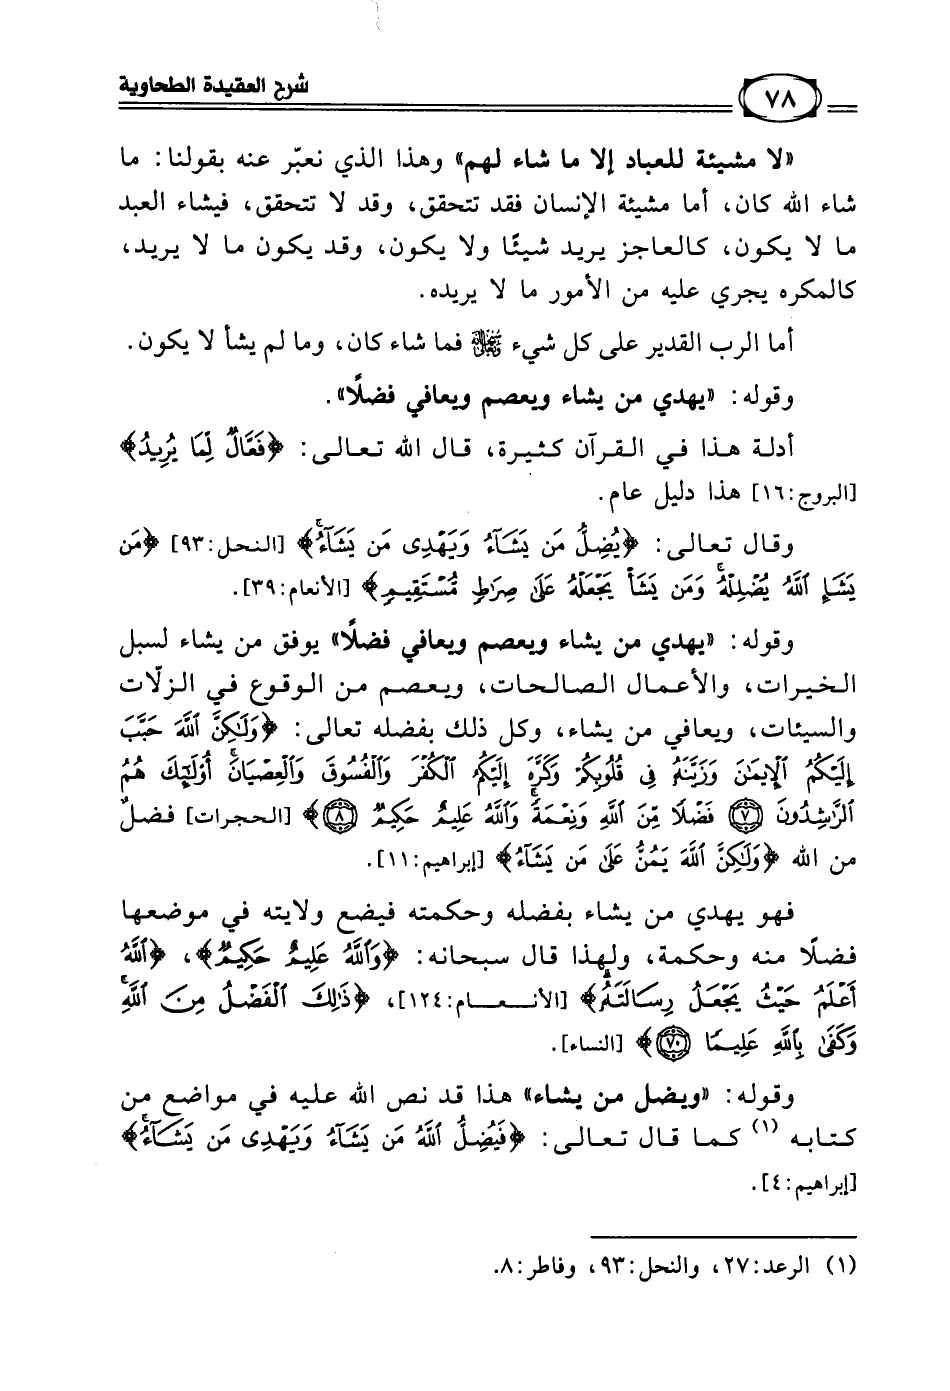 شرح العقيدة الطحاوية
٧٨
«لا مشيئة للعباد إلا ما شاء لهم» وهذا الذي نعبّر عنه بقولنا: ما
شاء الله كان، أما مشيئة الإنسان فقد تتحقق، وقد لا تتحقق، فيشاء العبد
ما لا يكون، كالعاجز يريد شيئًا ولا يكون، وقد يكون ما لا يريد،
كالمكره يجري عليه من الأمور ما لا يريده.
أما الرب القدير على كل شيء ﷻ فما شاء كان، وما لم يشأ لا يكون.
وقوله: «يهدي من يشاء ويعصم ويعافي فضلًا».
أدلة هذا في القرآن كثيرة، قال الله تعالى: ﴿فَعَّالٌ لِّمَا يُرِيدُ﴾
[البروج:١٦] هذا دليل عام.
وقال تعالى: ﴿يُضِلُّ مَن يَشَآءُ وَيَهْدِى مَن يَشَآءُ﴾ [النحل:٩٣] ﴿مَن
يَشَإِ ٱللَّهُ يُضْلِلْهُ وَمَن يَشَأْ يَجْعَلْهُ عَلَىٰ صِرَاطٍ مُّسْتَقِيمٍ﴾ [الأنعام:٣٩].
وقوله: «يهدي من يشاء ويعصم ويعافي فضلًا» يوفق من يشاء لسبل
الخيرات، والأعمال الصالحات، ويعصم من الوقوع في الزلّات
والسيئات، ويعافي من يشاء، وكل ذلك بفضله تعالى: ﴿وَلَٰكِنَّ ٱللَّهَ حَبَّبَ
إِلَيْكُمُ ٱلْإِيمَٰنَ وَزَيَّنَهُۥ فِى قُلُوبِكُمْ وَكَرَّهَ إِلَيْكُمُ ٱلْكُفْرَ وَٱلْفُسُوقَ وَٱلْعِصْيَانَ أُو۟لَٰٓئِكَ هُمُ
ٱلرَّٰشِدُونَ ۝٧ فَضْلًا مِّنَ ٱللَّهِ وَنِعْمَةً وَٱللَّهُ عَلِيمٌ حَكِيمٌ ۝٨﴾ [الحجرات] فضلٌ
من الله ﴿وَلَٰكِنَّ ٱللَّهَ يَمُنُّ عَلَىٰ مَن يَشَآءُ﴾ [إبراهيم:١١].
فهو يهدي من يشاء بفضله وحكمته فيضع ولايته في موضعها
فضلًا منه وحكمة، ولهذا قال سبحانه: ﴿وَٱللَّهُ عَلِيمٌ حَكِيمٌ﴾، ﴿ٱللَّهُ
أَعْلَمُ حَيْثُ يَجْعَلُ رِسَالَتَهُۥ﴾ [الأنعام:١٢٤]، ﴿ذَٰلِكَ ٱلْفَضْلُ مِنَ ٱللَّهِ
وَكَفَىٰ بِٱللَّهِ عَلِيمًا ۝٧٠﴾ [النساء].
وقوله: «ويضل من يشاء» هذا قد نص الله عليه في مواضع من
كتابه (١) كما قال تعالى: ﴿فَيُضِلُّ ٱللَّهُ مَن يَشَآءُ وَيَهْدِى مَن يَشَآءُ﴾
[إبراهيم:٤].
(١) الرعد:٢٧، والنحل:٩٣، وفاطر:٨.